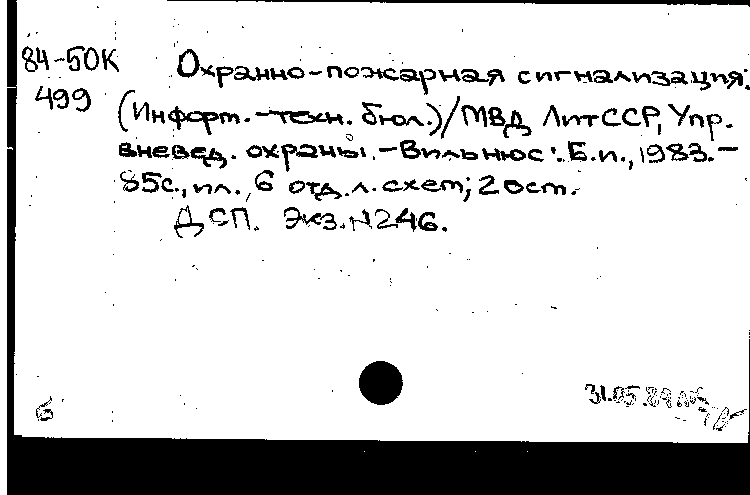 84-50К Охранно-пожарная сигнализация:
499 (Информ.-техн. бюл.)/МВД ЛитССР, Упр.
вневед. охраны.-Вильнюс: Б.и., 1983.-
85с., ил., 6 отд.л. схем; 20cm.
ДСП. Экз.N246.
31.05.84
б